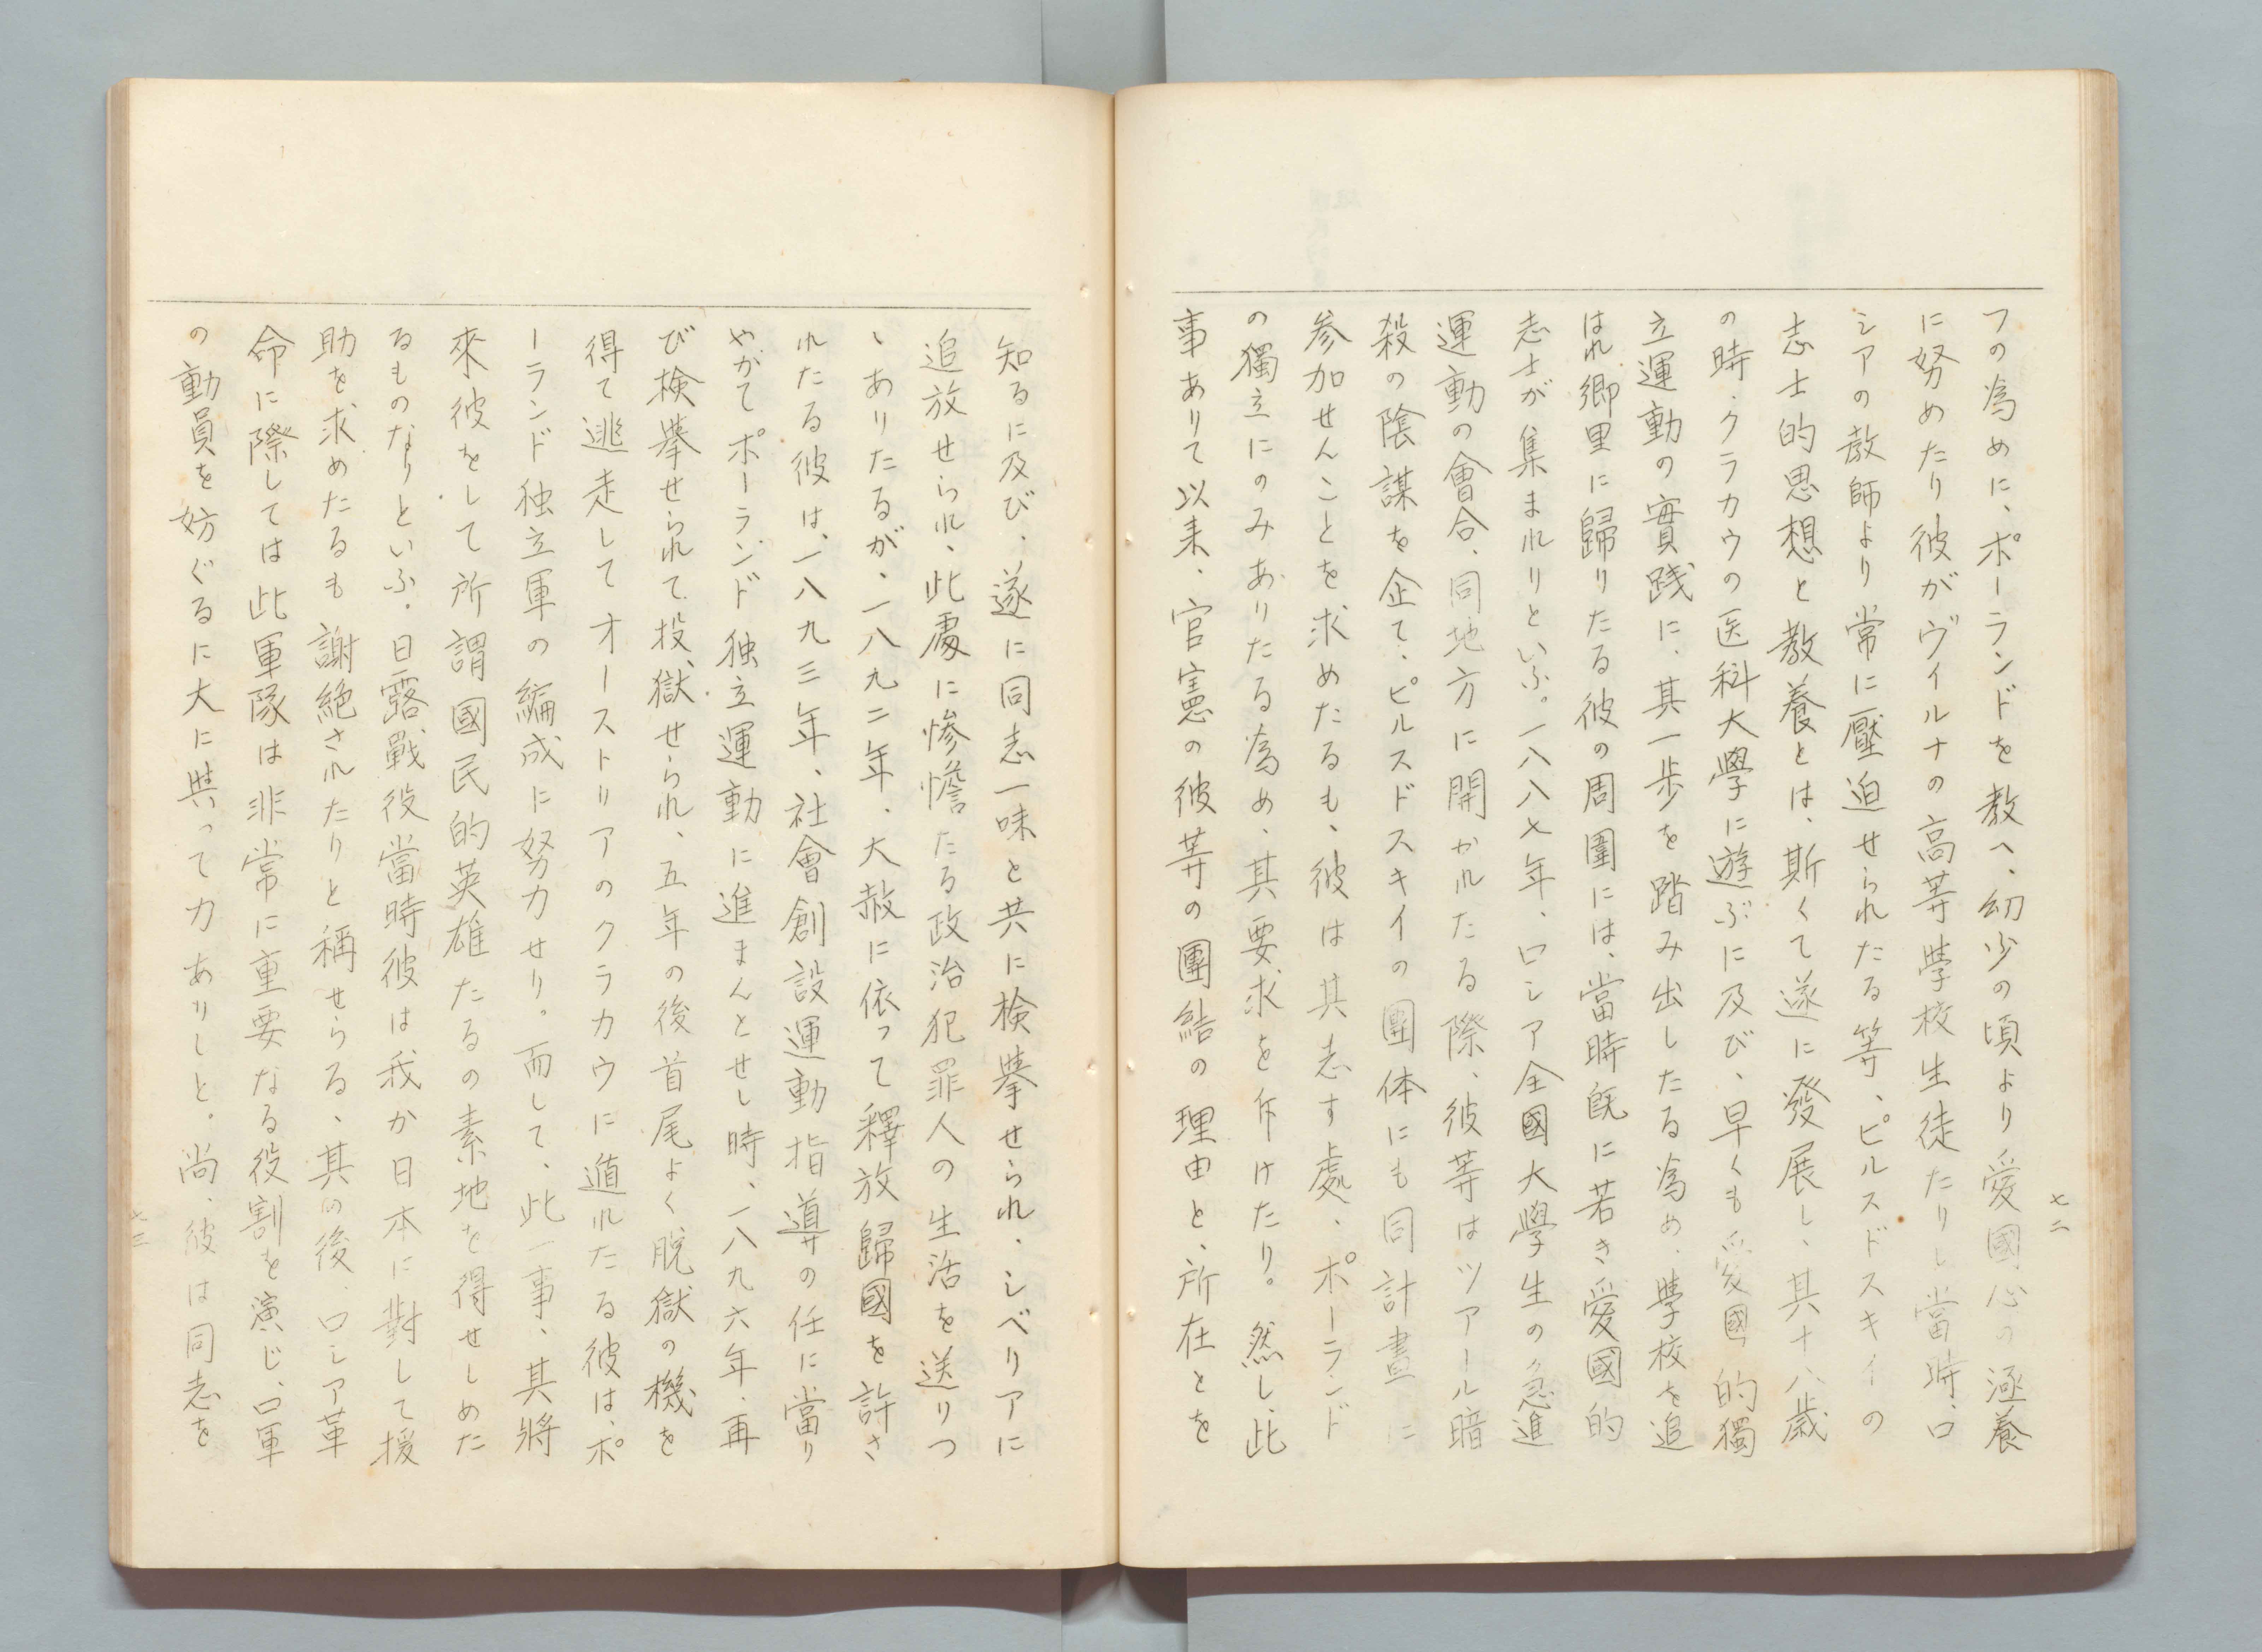 フの為めに、ポーランドを教へ、幼少の頃より愛國心の涵養
に努めたり彼がヴィルナの高等學校生徒たりし當時、ロ
シアの教師より常に壓迫せられたる等、ピルスドスキイの
志士的思想と教養とは、斯くて遂に發展し、其十八歳
の時、クラカウの医科大學に遊ぶに及び、早くも愛國的獨
立運動の實践に、其一歩を踏み出したる為め、學校を追
はれ郷里に歸りたる彼の周圍には、當時既に若き愛國的
志士が集まれりといふ。一八八七年、ロシア全國大學生の急進
運動の會合、同地方に開かれたる際、彼等はツアール暗
殺の陰謀を企て、ピルスドスキイの團体にも同計畫に
参加せんことを求めたるも、彼は其志す處、ポーランド
の獨立にのみありたる為め、其要求を斥けたり。然し、此
事ありて以来、官憲の彼等の團結の理由と、所在とを
七二
知るに及び、遂に同志一味と共に検挙せられ、シベリアに
追放せられ、此處に惨憺たる政治犯罪人の生活を送りつ
ヽありたるが、一八九二年、大赦に依って釋放歸國を許さ
れたる彼は、一八九三年、社會創設運動指導の任に當り
やがてポーランド独立運動に進まんとせし時、一八九六年、再
び検挙せられて投獄せられ、五年の後首尾よく脱獄の機を
得て逃走してオーストリアのクラカウに遁れたる彼は、ポ
ーランド独立軍の編成に努力せり。而して、此一事、其將
來彼をして所謂國民的英雄たるの素地を得せしめた
るものなりといふ。日露戰役當時彼は我か日本に對して援
助を求めたるも謝絶されたりと稱せらる、其の後、ロシア革
命に際しては此軍隊は非常に重要なる役割を演じ、ロ軍
の動員を妨ぐるに大に與って力ありしと。尚、彼は同志を
七三